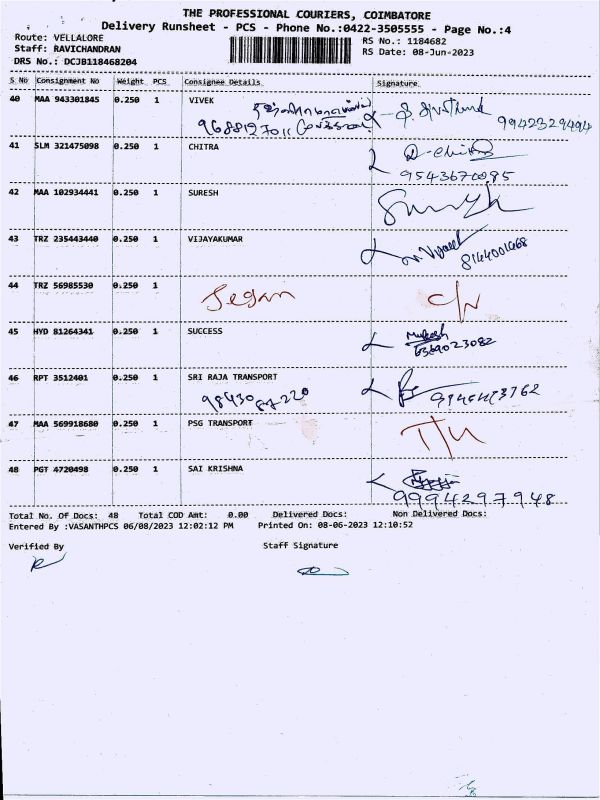 THE PROFESSIONAL COURIERS, COIMBATORE
Delivery Runsheet - PCS - Phone No.:0422-3505555 - Page No.:4
Route: VELLALORE RS No.: 1184682
Staff: RAVICHANDRAN RS Date: 08-Jun-2023
DRS No.: DCJB118468204
S No Consignment No Weight PCS Consignee Details Signature
40 MAA 943301845 0.250 1 VIVEK
9942329494
41 SLM 321475098 0.250 1 CHITRA
9543670095
42 MAA 102934441 0.250 1 SURESH
43 TRZ 235443440 0.250 1 VIJAYAKUMAR
8144001468
44 TRZ 56985530 0.250 1 Jegan
45 HYD 81264341 0.250 1 SUCCESS
6369023082
46 RPT 3512401 0.250 1 SRI RAJA TRANSPORT
47 MAA 569918680 0.250 1 PSG TRANSPORT
48 PGT 4720498 0.250 1 SAI KRISHNA
9994297948
Total No. Of Docs: 48 Total COD Amt: 0.00 Delivered Docs: Non Delivered Docs:
Entered By :VASANTHPCS 06/08/2023 12:02:12 PM Printed On: 08-06-2023 12:10:52
Verified By Staff Signature